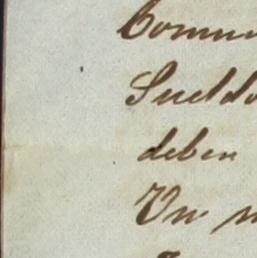 Comun
Sueldo
deben
Un n